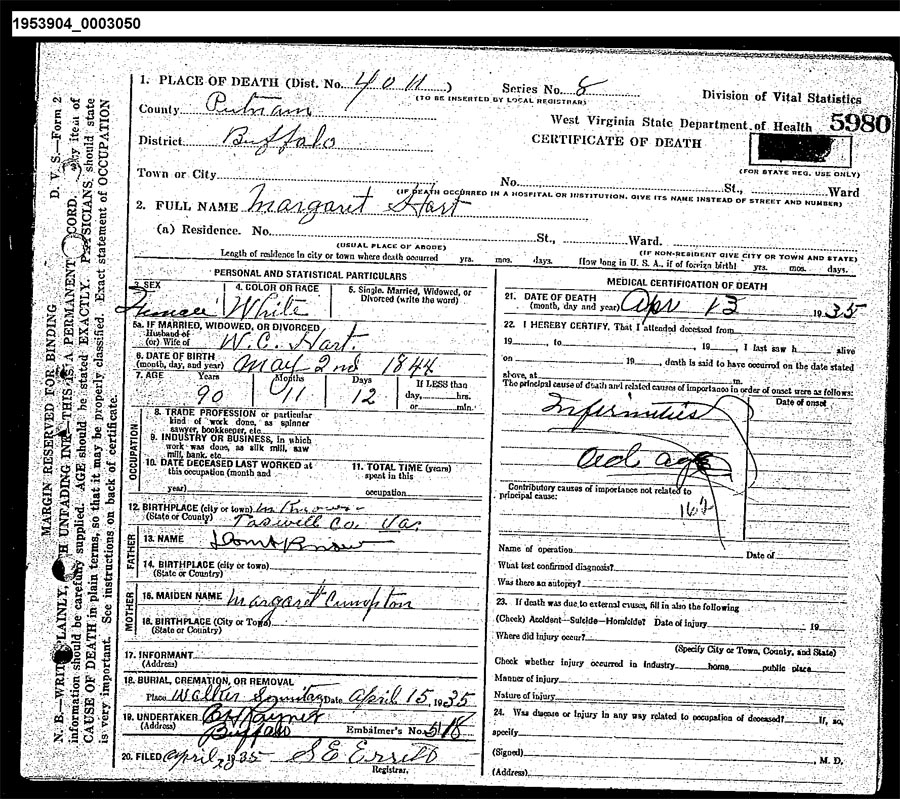 1953904_0003050
1. PLACE OF DEATH (Dist. No. 4011)
Series No. 8
(TO BE INSERTED BY LOCAL REGISTRAR)
Division of Vital Statistics
County Putnam
West Virginia State Department of Health 5980
District Buffalo
CERTIFICATE OF DEATH
(FOR STATE REG. USE ONLY)
Town or City
No. St., Ward
(IF DEATH OCCURRED IN A HOSPITAL OR INSTITUTION, GIVE ITS NAME INSTEAD OF STREET AND NUMBER)
2. FULL NAME Margaret Hart
(a) Residence. No. St., Ward.
(USUAL PLACE OF ABODE) (IF NON-RESIDENT GIVE CITY OR TOWN AND STATE)
Length of residence in city or town where death occurred yrs. mos. days. How long in U. S. A., if of foreign birth? yrs. mos. days.
PERSONAL AND STATISTICAL PARTICULARS
3. SEX
4. COLOR OR RACE White
5. Single, Married, Widowed, or Divorced (write the word)
5a. IF MARRIED, WIDOWED, OR DIVORCED
Husband of
(or) Wife of W. C. Hart.
6. DATE OF BIRTH
(month, day, and year) May 2nd 1844
7. AGE Years Months Days If LESS than
90 11 12 day, hrs.
or min.
OCCUPATION
8. TRADE PROFESSION or particular
kind of work done, as spinner
sawyer, bookkeeper, etc.
9. INDUSTRY OR BUSINESS, in which
work was done, as silk mill, saw
mill, bank, etc.
10. DATE DECEASED LAST WORKED at
this occupation (month and
year)
11. TOTAL TIME (years)
spent in this
occupation
12. BIRTHPLACE (city or town)
(State or County) Taswell Co. Va.
FATHER
13. NAME Dont Know
14. BIRTHPLACE (city or town)
(State or Country)
MOTHER
15. MAIDEN NAME Margaret Cumpton
16. BIRTHPLACE (City or Town)
(State or Country)
17. INFORMANT
(Address)
18. BURIAL, CREMATION, OR REMOVAL
Place Walker Date April 15, 1935
19. UNDERTAKER
(Address) Buffalo Embalmer's No. 518
20. FILED April 35 S E
Registrar.
MEDICAL CERTIFICATION OF DEATH
21. DATE OF DEATH
(month, day and year) Apr 13 1935
22. I HEREBY CERTIFY, That I attended deceased from
19, to 19, I last saw h alive
on 19, death is said to have occurred on the date stated
above, at m.
The principal cause of death and related causes of importance in order of onset were as follows:
Date of onset
Infirmities
Old age
Contributory causes of importance not related to
principal cause:
162
Name of operation Date of
What test confirmed diagnosis?
Was there an autopsy?
23. If death was due to external causes, fill in also the following
(Check) Accident—Suicide—Homicide? Date of injury 19
Where did injury occur?
(Specify City or Town, County, and State)
Check whether injury occurred in Industry home public place
Manner of injury
Nature of injury
24. Was disease or injury in any way related to occupation of deceased? If, so,
specify
(Signed) M. D.
(Address)
D. V. S.—Form 2
MARGIN RESERVED FOR BINDING